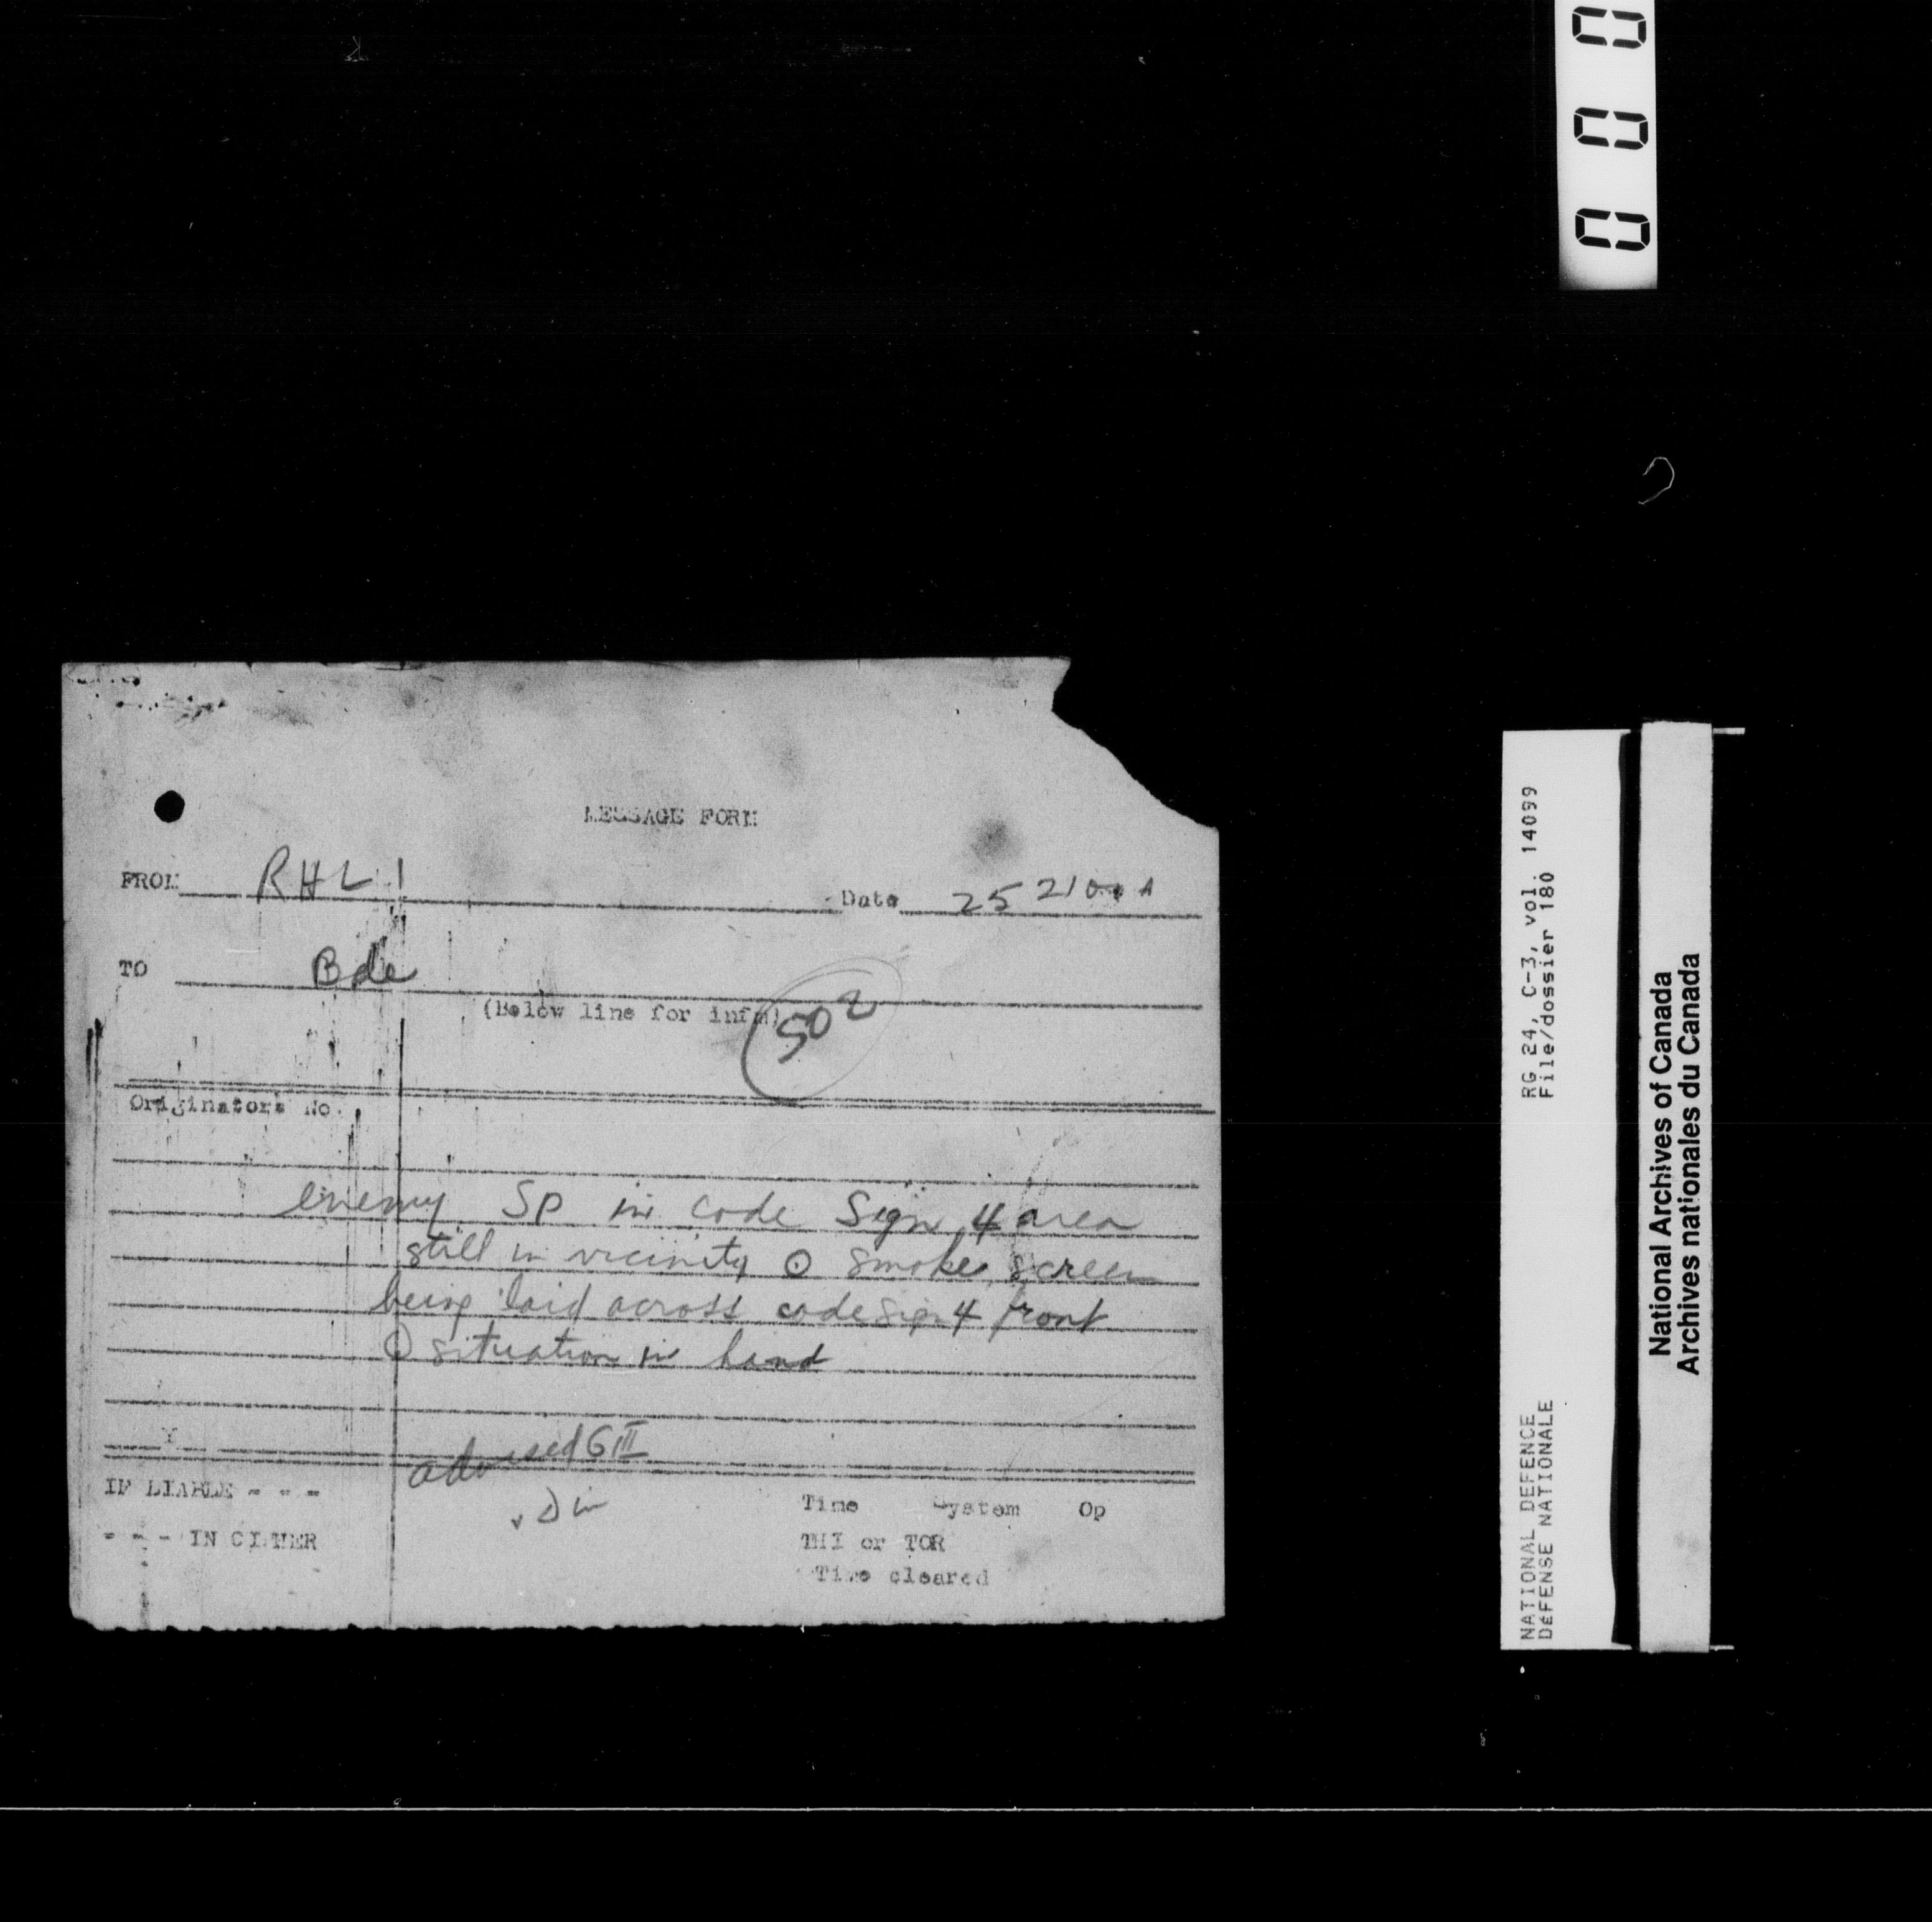 0 0 0
MESSAGE FORM
FROM RHLI Date 25 2100 A
TO Bde
(Below line for infm)
502
Originators No.
enemy SP in code Sign 4 area
still in vicinity ⊙ smoke screen
being laid across code sign 4 front
⊙ situation in hand
advised G III
Div
IF LIABLE - - -
- - - IN CIPHER
Time System Op
THI or TOR
Time cleared
RG 24, C-3, vol. 14099
File/dossier 180
NATIONAL DEFENCE
DéFENSE NATIONALE
National Archives of Canada
Archives nationales du Canada